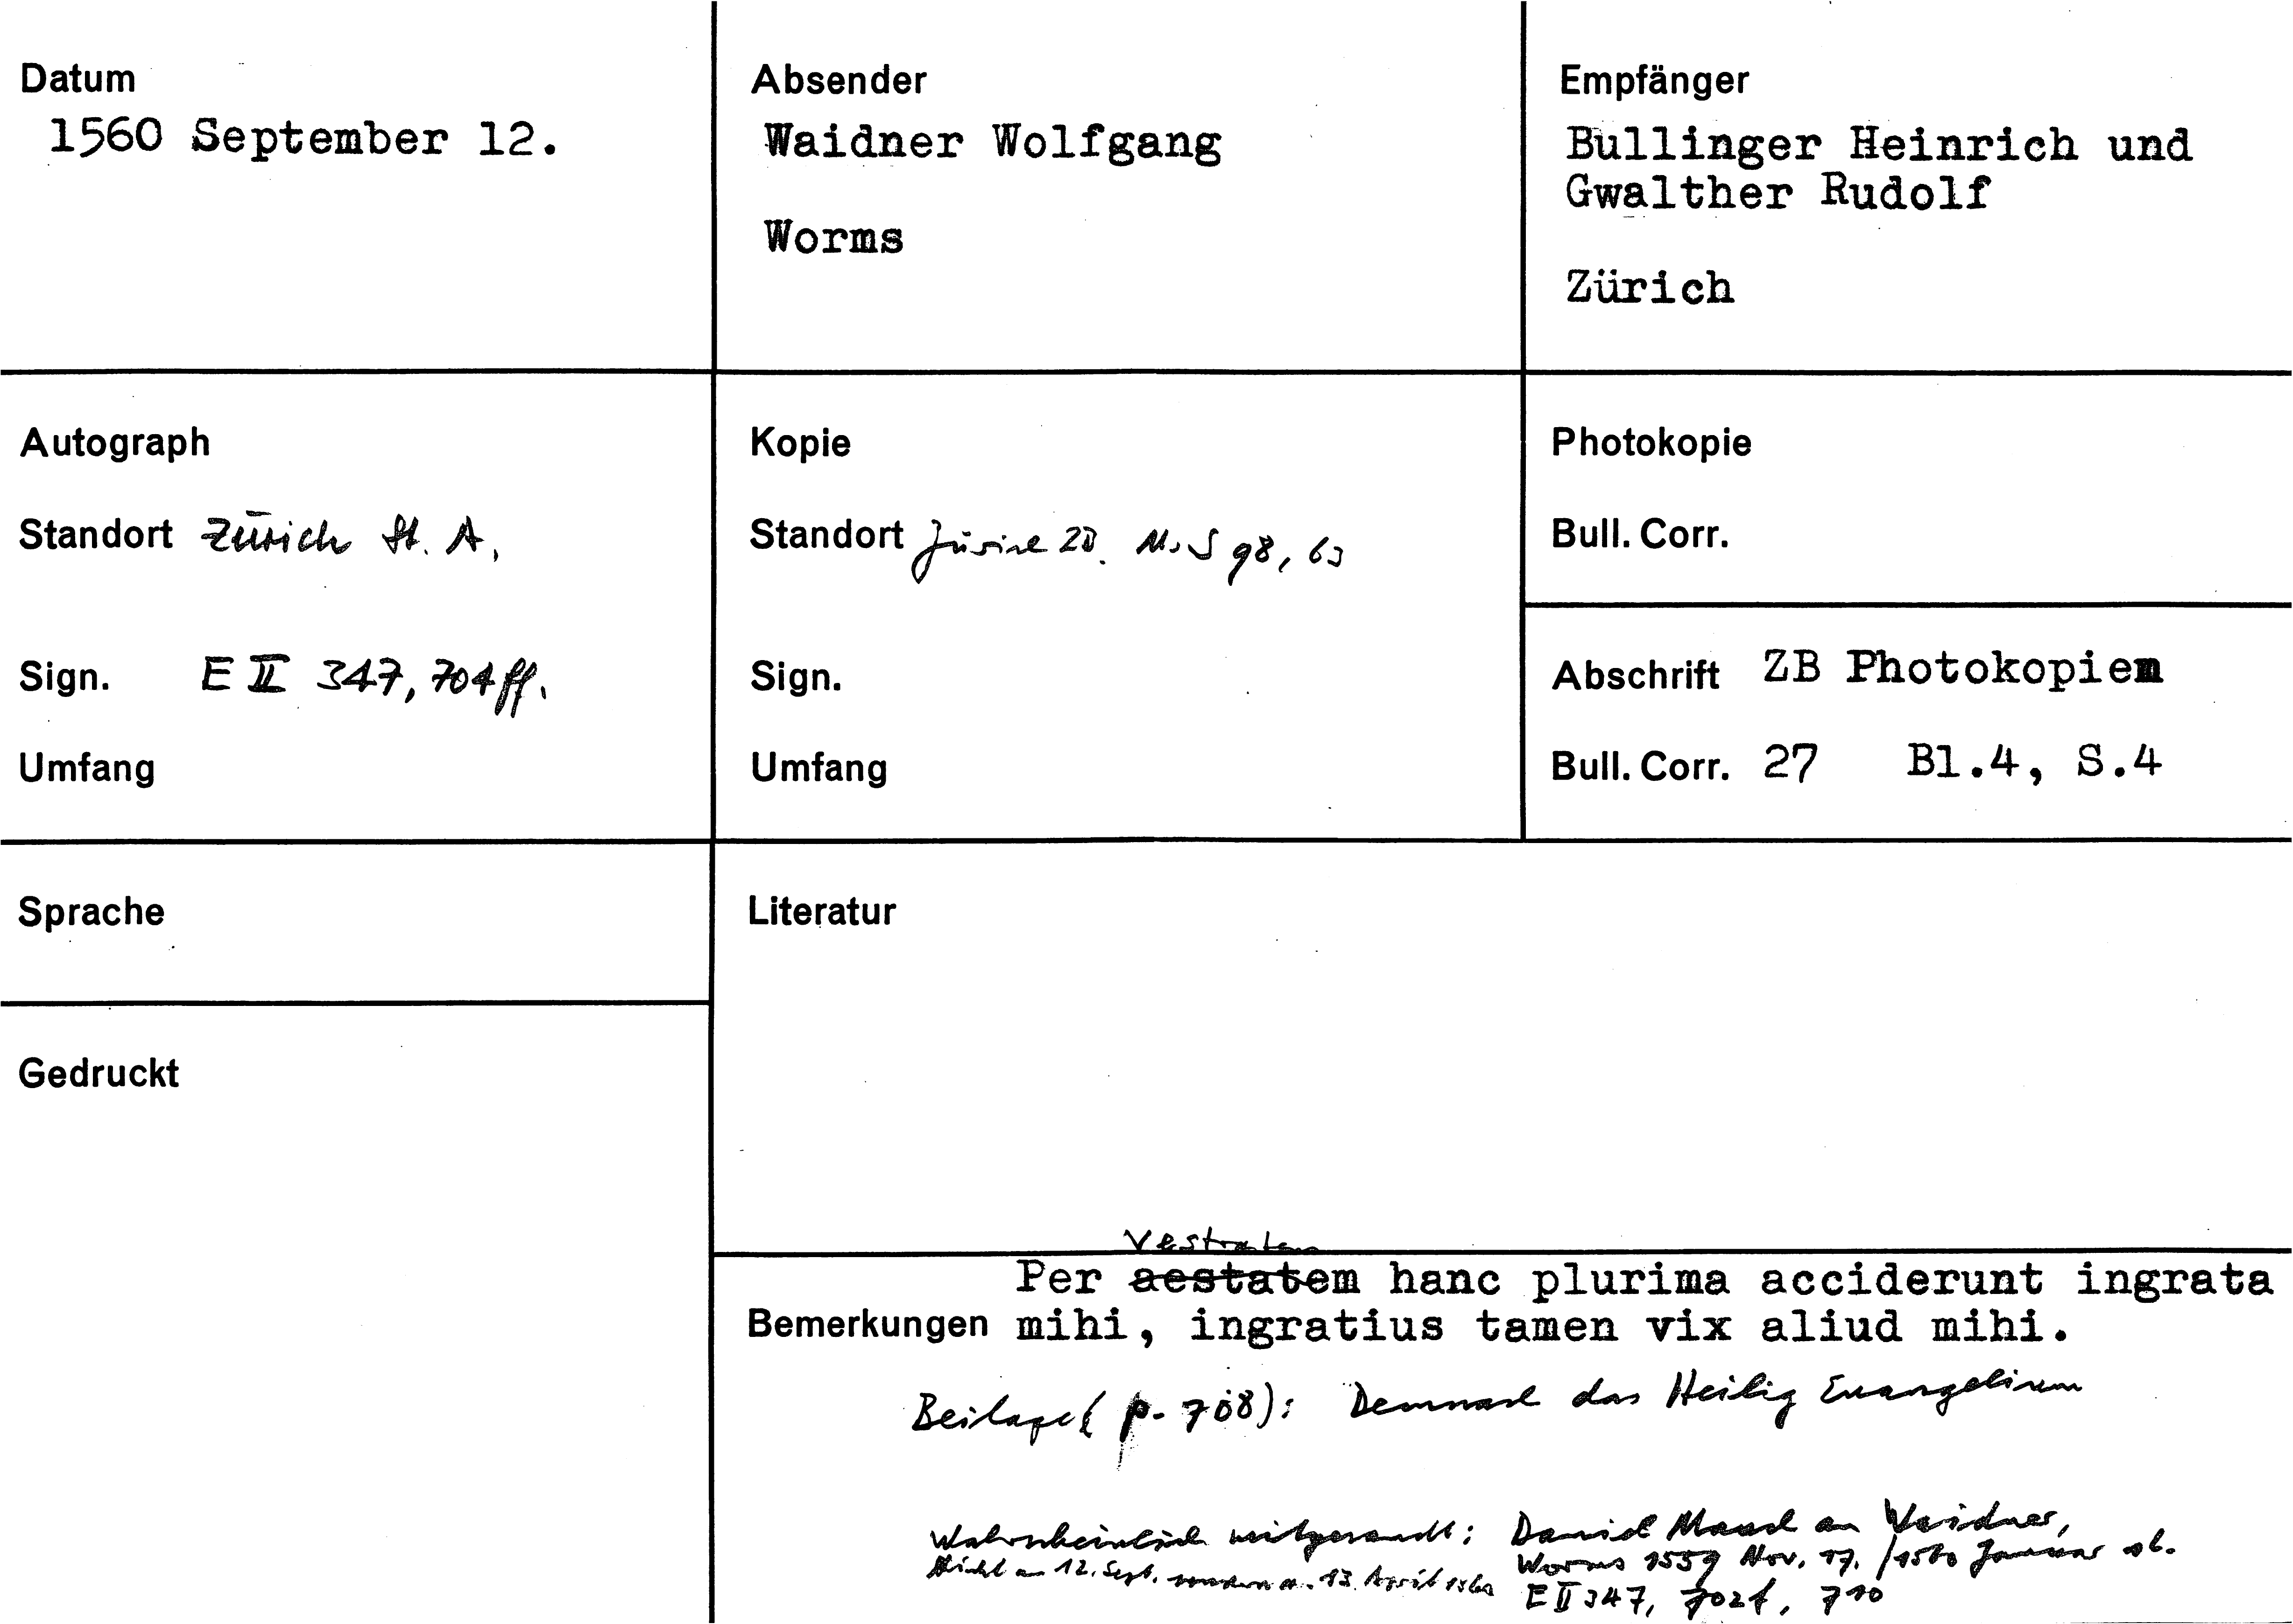 Datum
1560 September 12.
Absender
Waidner Wolfgang
Worms
Empfänger
Bullinger Heinrich und
Gwalther Rudolf
Zürich
Autograph
Standort Zürich St. A.
Sign. E II 347, 704ff.
Umfang
Kopie
Standort Zürich ZB. Ms S 98, 63
Sign.
Umfang
Photokopie
Bull. Corr.
Abschrift ZB Photokopien
Bull. Corr. 27 Bl.4, S.4
Sprache
Gedruckt
Literatur
Per aestatem hanc plurima acciderunt ingrata
Bemerkungen mihi, ingratius tamen vix aliud mihi.
Beilage( p. 708): Demnach das Heilig Euangelium
Wahrscheinlich mitgesandt: Daniel an Waidner,
Nicht am 12. Sept. sondern a. 13. April 1560 Worms 1559 Nov. 17. /1560 Januar 16.
E II 347, 702f, 710